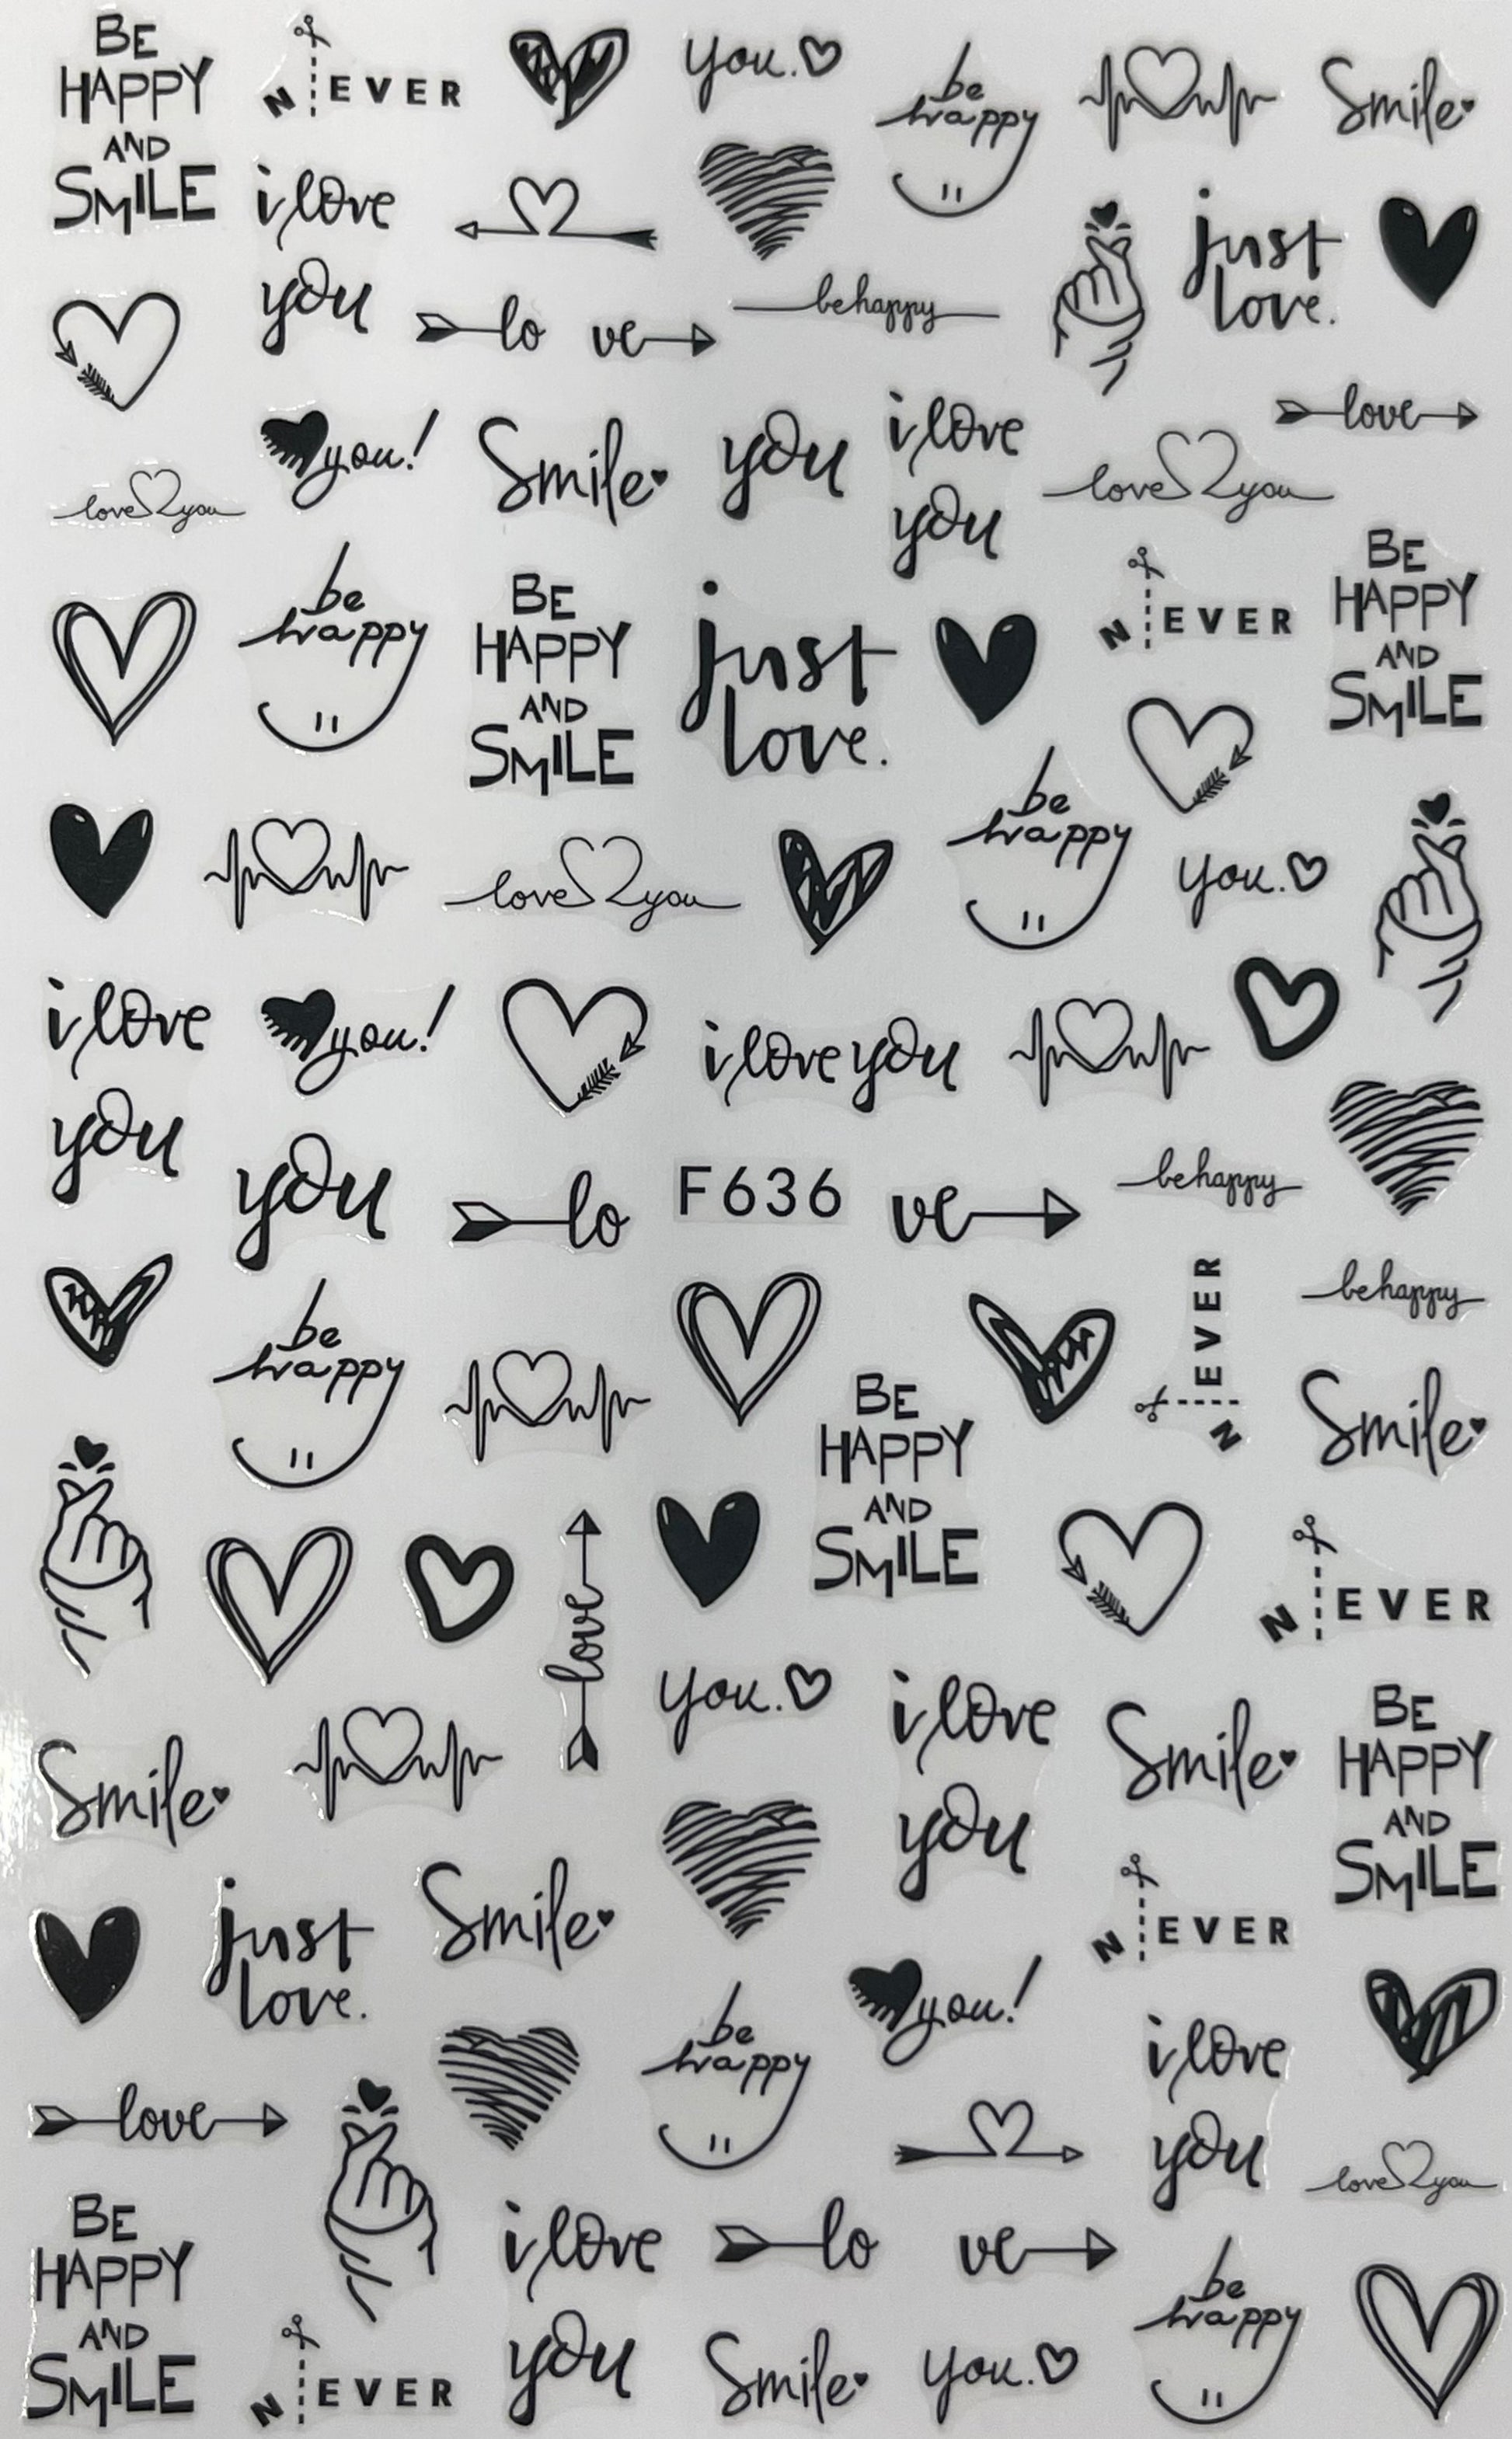 BE
HAPPY
AND
SMILE
NEVER
you.
be
happy
Smile
i love
you
just
love.
lo ve
behappy
love
you!
Smile
you
i love
you
love you
love you
be
happy
BE
HAPPY
AND
SMILE
just
love.
NEVER
BE
HAPPY
AND
SMILE
be
happy
love you
you.
i love
you
you!
i love you
you
lo
F636
ve
behappy
behappy
be
happy
NEVER
BE
HAPPY
AND
SMILE
Smile
love
NEVER
you.
i love
you
Smile
Smile
BE
HAPPY
AND
SMILE
just
love.
Smile
NEVER
you!
be
happy
i love
you
love
love you
BE
HAPPY
AND
SMILE
i love
you
lo ve
be
happy
NEVER
Smile
you.